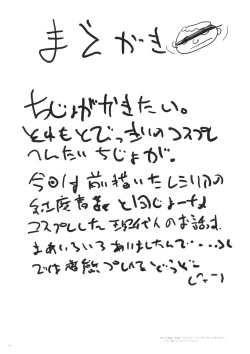 まえがき
ちじょがかきたい。
それもとびっきりのコスプレ
へんたいちじょが。
今回は前描いたレミリアの
紅度青裏と同じよーな
コスプレした現代人のお話は
まあいろいろありましたんで・・・
では変態プレイをどうぞー